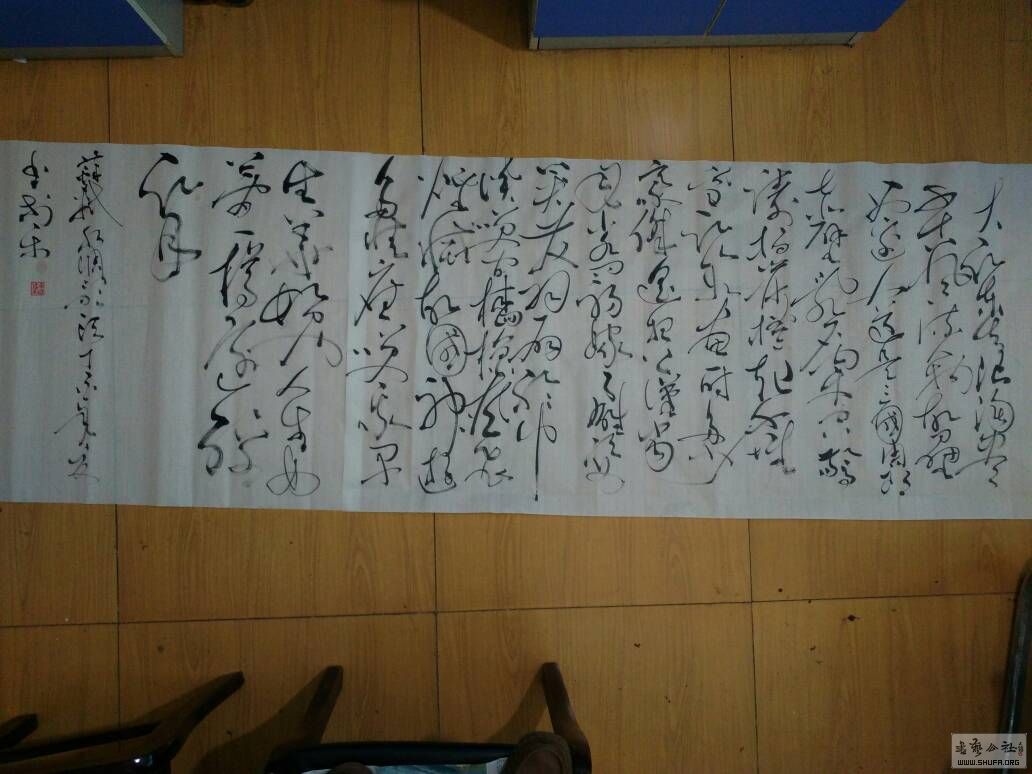 大江東去浪淘盡
千古風流人物故壘
西邊人道是三國周郎
赤壁亂石崩雲驚
濤拍岸捲起千堆
雪江山如畫一時多少
豪傑遙想公瑾當
年小喬初嫁了雄姿
英發羽扇綸巾
談笑間檣櫓灰飛
煙滅故國神遊
多情應笑我早
生華髮人生如
夢一樽還酹
江月
書藝公社
WWW.SHUFA.ORG